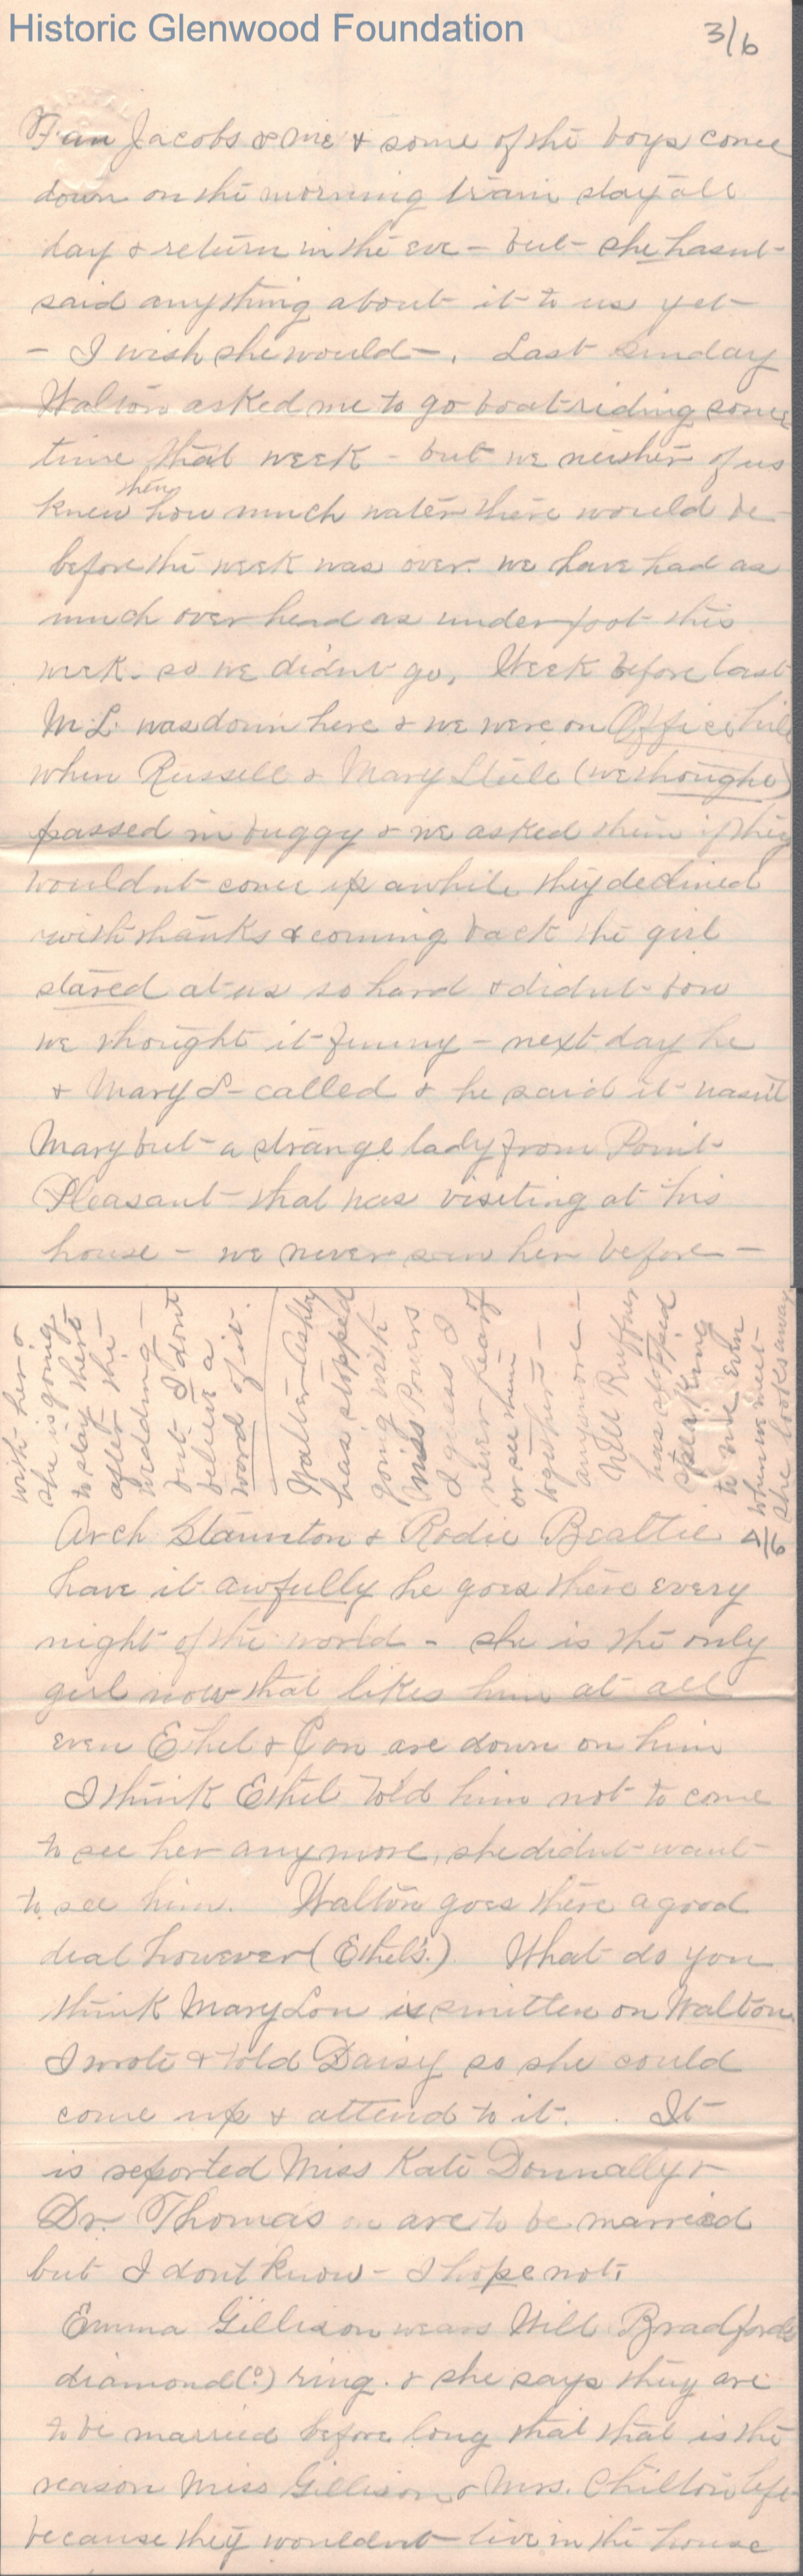 Historic Glenwood Foundation
3/6
Fan Jacobs & me & some of the boys come
down on the morning train stay all
day & return in the eve - but - she hasnt -
said anything about it to us yet -
- I wish she would -. Last Sunday
Walton asked me to go boat riding some
time that week - but we neither of us
then
knew how much water there would be
before the week was over. we have had as
much over head as under foot this
week. so we didnt go. Week before last
M. L. was down here & we were on Office hill
when Russell & Mary Steele (we thought)
passed in buggy & we asked them if they
wouldnt come up awhile they declined
with thanks & coming back the girl
stared at us so hard & didnt bow
we thought it funny - next day he
& Mary S - called & he said it wasn't
Mary but a strange lady from Point
Pleasant - that was visiting at his
house - we never saw her before -
with her &
she is going
to stay there
after the
wedding -
but I dont
believe a
word of it.
Walter Ashby
has stopped
going with
Miss Powers
I guess I
never hear of
or see them
together -
anymore -
Nell Ruffner
has stopped
speaking
to me even
when we meet
she looks away
4/6
Arch Staunton & Rodie Beattie
have it awfully he goes there every
night of the world - she is the only
girl now that likes him at all
even Ethel & Con are down on him
I think Ethel told him not to come
to see her anymore, she didnt want
to see him. Walton goes there a good
deal however (Ethel's.) What do you
think Mary Lou is smitten on Walton
I wrote & told Daisy so she could
come up & attend to it. . It
is reported Miss Kate Donnally &
Dr. Thomas are to be married
but I dont know - I hope not.
Emma Gillison wears Will Bradfords
diamond(?) ring. & she says they are
to be married before long that that is the
reason Miss Gillison & Mrs. Chilton left
because they wouldnt live in the house